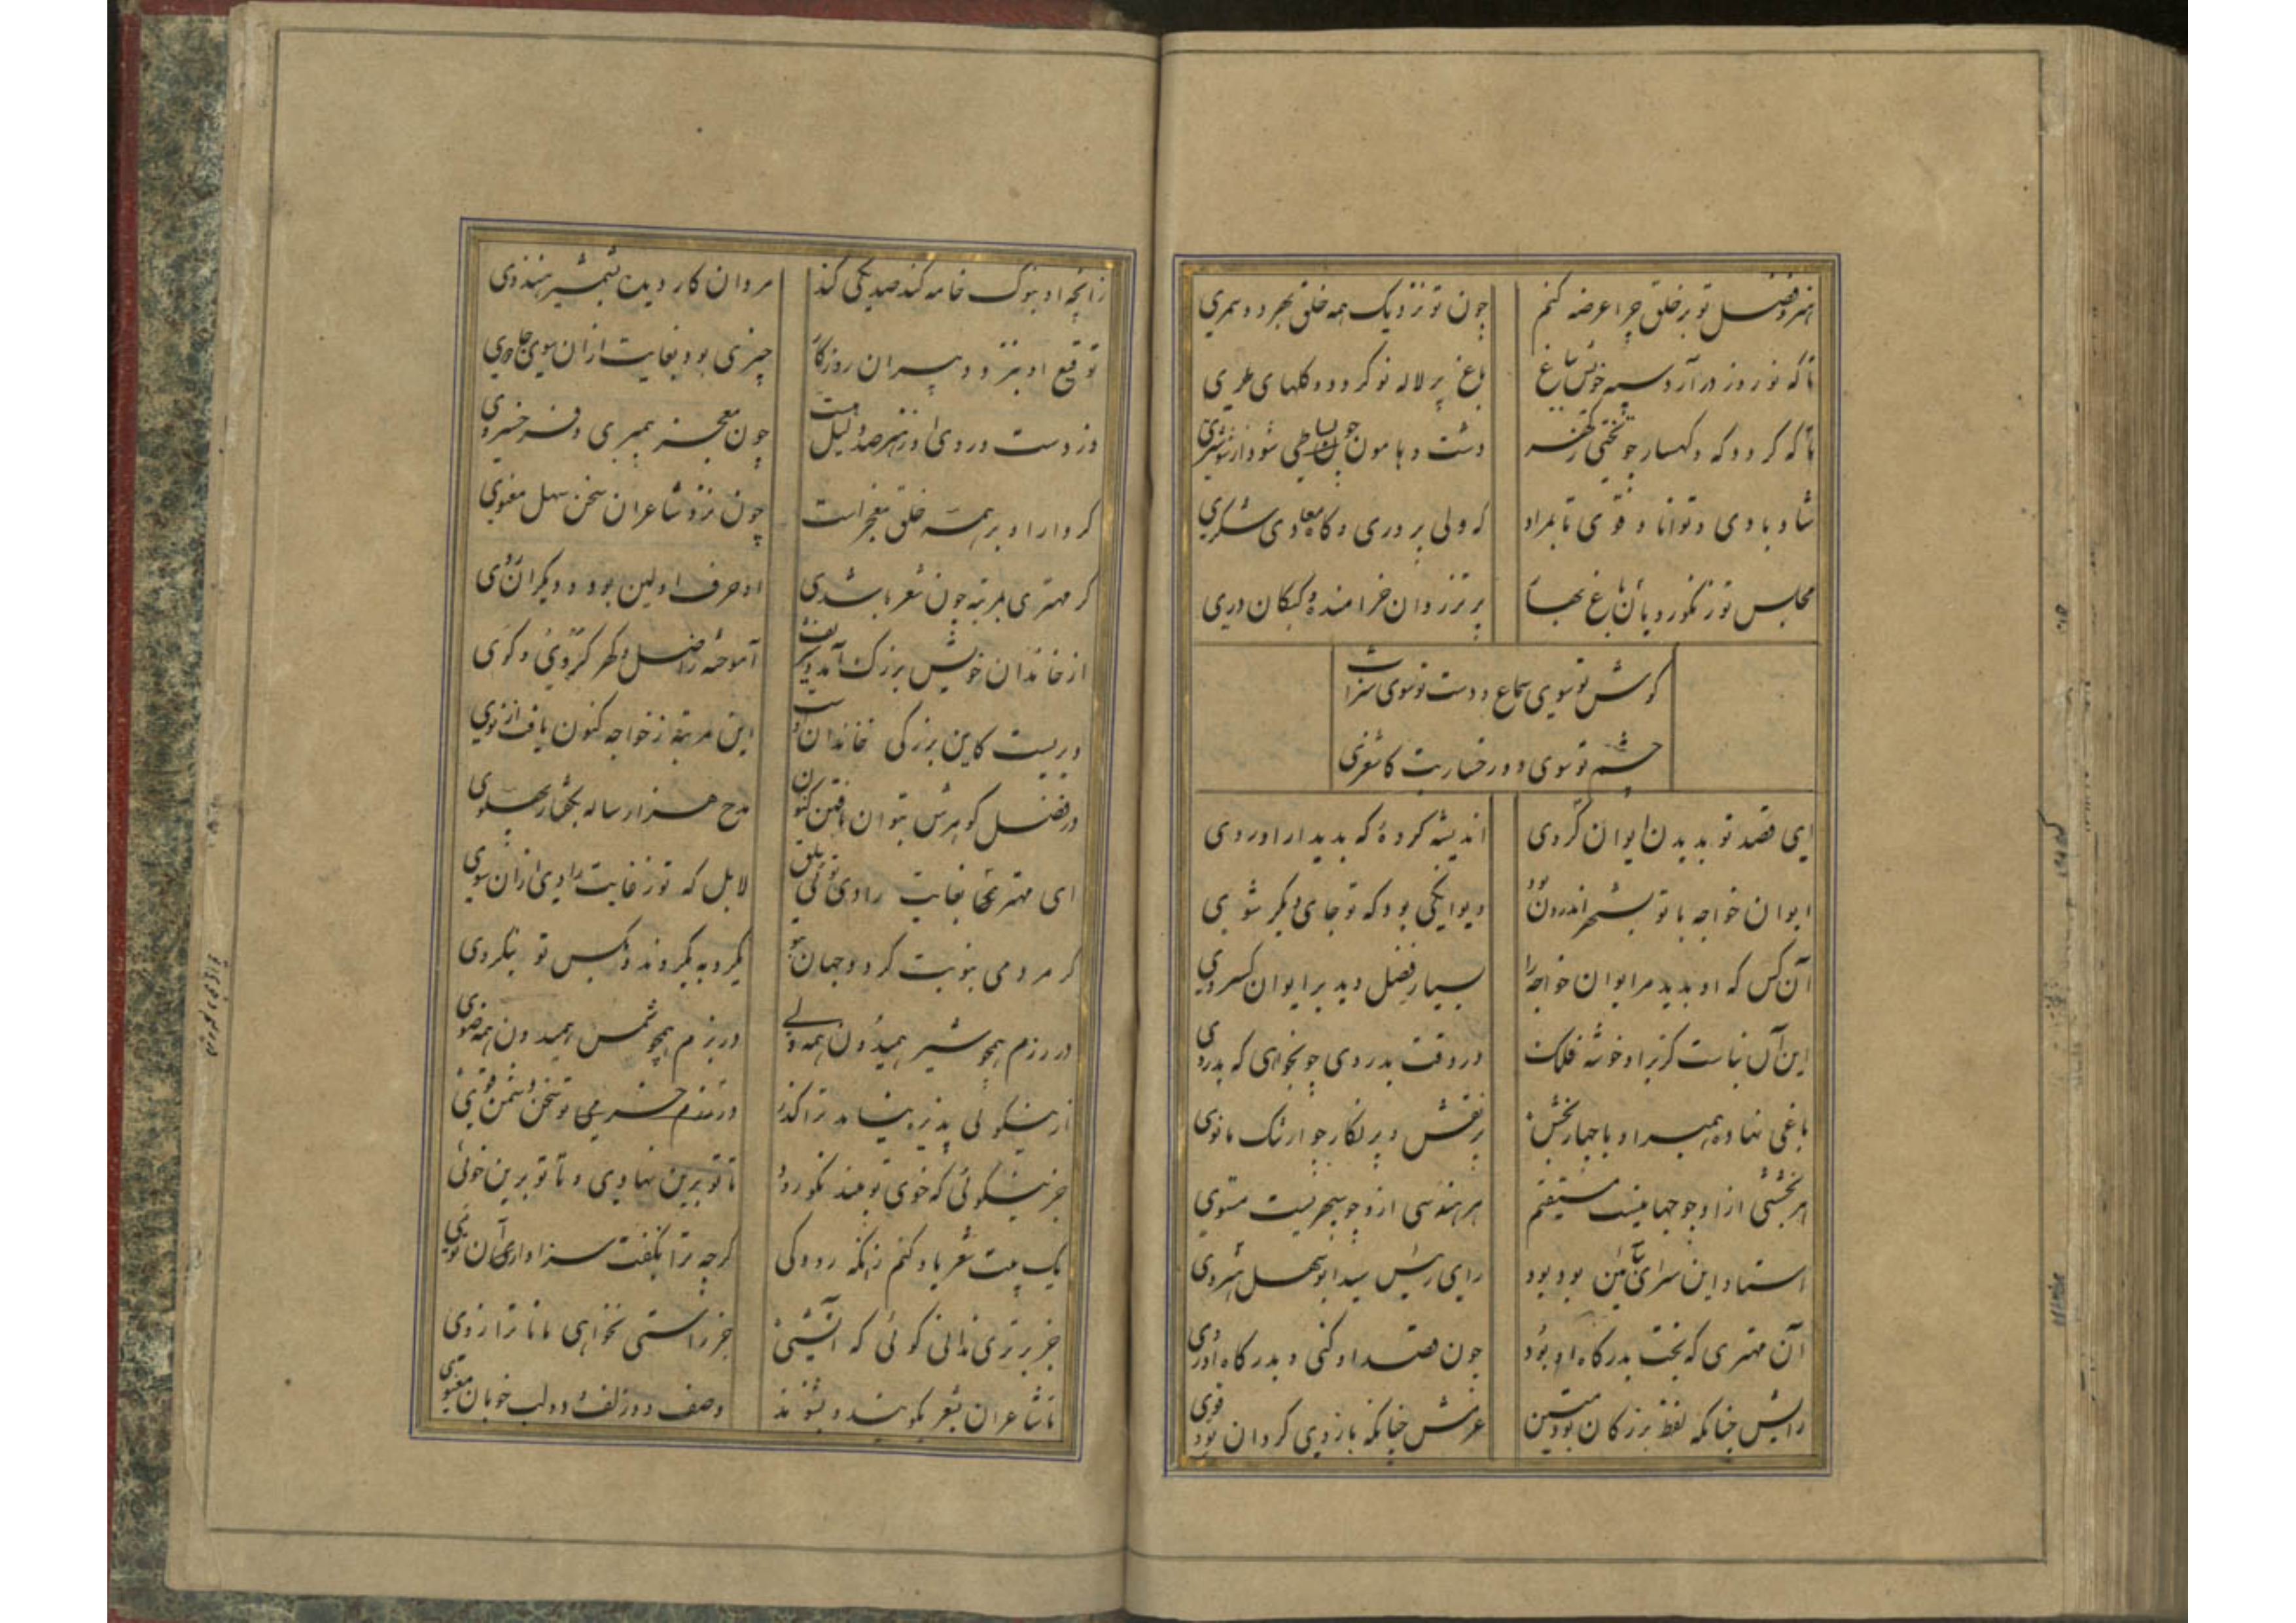 هنر و فضل تو بر خلق چرا عرضه کنم چون تو نزدیک همه خلق بهر دو سمری
تا که نوروز در آرد سپه خویش بباغ باغ پر لاله نو گردد و گلهای طری
تا که گردد که و کهسار چو تختی گهر دشت و هامون چون بساطی شود از شوشتری
شاد بادی و توانا و قوی تا بمراد که ولی پروری و گاه معادی شکری
مجلس تو ز نکورویان باغ بهار پر تذروان خرامنده و کبکان دری
گوش تو سوی سماع و دست تو سوی شراب
چشم تو سوی دو رخسار بت کاشغری
ای قصد تو بدیدن ایوان کردی اندیشه کرده که بدیدار او روی
ایوان خواجه با تو بشهر اندرون بود دیوانگی بود که تو جای دیگر شوی
آن کس که او بدید مر ایوان خواجه را بسیار فضل دید بر ایوان کسروی
این آن بناست کز بر او خوشه فلک در وقت بدروی چو بخواهی که بدروی
باغی نهاده همبر او با چهار بخش پر نقش و پر نگار چو ارتنگ مانوی
هر بخشی از او چو جهانیست مستقیم هر هندسی ازو چو سپهریست مستوی
استاد این سرای بآیین بود بود رای رئیس سید ابوسهل
آن مهتری که بخت بدرگاه او بود چون قصد او کنی و بدرگاه او روی
رایش چنانکه لفظ بزرگان بود متین عزمش چنانکه بازوی گردان بود قوی
زانچه او بنوک خامه کند صد یکی کند مردان کار دیده بشمشیر هندوی
توقیع او بنزد دبیران روزگار چیزی بود بغایت از آن سوی جادوی
در دست و روی او ز هنر صد دلیل هست چون معجز پیمبری و فر خسروی
کردار او بر همه خلق معجز است چون نزد شاعران سخن سهل معنوی
گر مهتری بمرتبه چون شعر باشدی او حرف اولین بود و دیگران روی
از خاندان خویش بزرگ آمد و شریف آموخته ز اصل و گهر گردی و گوی
دیریست کاین بزرگی در خاندان اوست این مرتبه ز خواجه کنون یافت از نوی
در فضل گوهرش بتوان یافتن کنون مدح هزار ساله بگفتار پهلوی
ای مهتری که بغایت رادی تو لابل که تو ز غایت رادی از آن سوی
گر مردمی نبوت گردد جهان بتو یکرویه بگروند و بکس تو بنگروی
در رزم همچو شیر همیدون همه دلی در بزم همچو شمس همیدون همه ضوی
جز نیکوئی که خوی تو بیند نکو رود تا تو برین نهادی و تا تو برین خوئی
یک بیت شعر یاد کنم زانکه رودکی گرچه ترا نگفت سزاوار آن توئی
جز برتری ندانی گوئی که آتشی جز راستی نخواهی مانا ترازوی
تا شاعران بشعر بگویند و بشنوند وصف دو زلف و دو لب خوبان